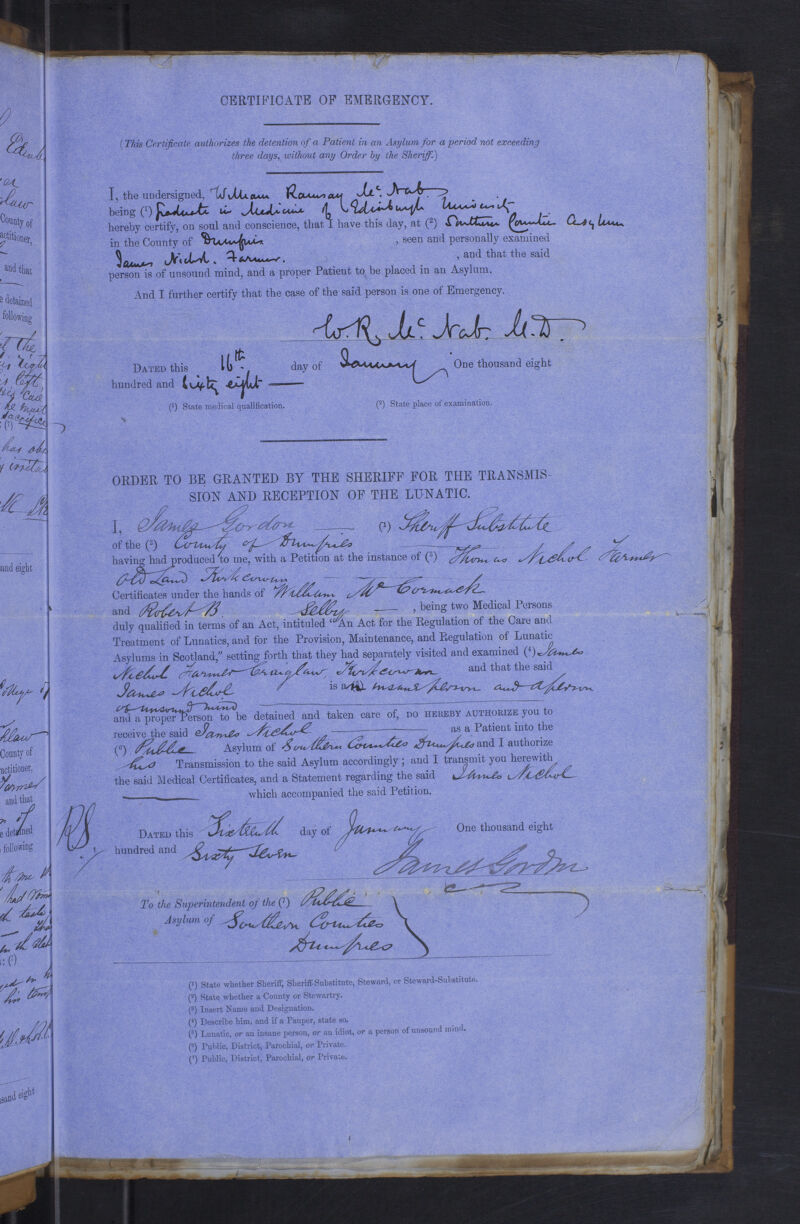 CERTIFICATE OF EMERGENCY.
(This Certificate authorizes the detention of a Patient in an Asylum for a period not exceeding
three days, without any Order by the Sheriff.)
I, the undersigned, William Ramsay Mc. Nab
being (¹) Graduate in Medicine of Edinburgh University
hereby certify, on soul and conscience, that I have this day, at (²) Southern Counties Asylum
in the County of Dumfries , seen and personally examined
James Nichol. Farmer. , and that the said
person is of unsound mind, and a proper Patient to be placed in an Asylum.
And I further certify that the case of the said person is one of Emergency.
W. R. Mc. Nab. M.D.
DATED this 16th. day of January, One thousand eight
hundred and Sixty eight
(¹) State medical qualification. (²) State place of examination.
ORDER TO BE GRANTED BY THE SHERIFF FOR THE TRANSMIS-
SION AND RECEPTION OF THE LUNATIC.
I, James Gordon (¹) Sheriff Substitute
of the (²) County of Dumfries
having had produced to me, with a Petition at the instance of (³) Thomas Nichol Farmer
Old Land Kirkcowan
Certificates under the hands of William Mc Cormack
and Robert B Selby , being two Medical Persons
duly qualified in terms of an Act, intituled "An Act for the Regulation of the Care and
Treatment of Lunatics, and for the Provision, Maintenance, and Regulation of Lunatic
Asylums in Scotland," setting forth that they had separately visited and examined (⁴) James
Nichol Farmer Craiglaw, Kirkcowan and that the said
James Nichol is an insane person and a person
of unsound mind
and a proper Person to be detained and taken care of, DO HEREBY AUTHORIZE you to
receive the said James Nichol as a Patient into the
(⁶) Public Asylum of Southern Counties Dumfries and I authorize
his Transmission to the said Asylum accordingly; and I transmit you herewith
the said Medical Certificates, and a Statement regarding the said James Nichol
which accompanied the said Petition.
DATED this Sixteenth day of January One thousand eight
hundred and Sixty Seven
James Gordon
To the Superintendent of the (⁷) Public
Asylum of Southern Counties
Dumfries
(¹) State whether Sheriff, Sheriff-Substitute, Steward, or Steward-Substitute.
(²) State whether a County or Stewartry.
(³) Insert Name and Designation.
(⁴) Describe him, and if a Pauper, state so.
(⁵) Lunatic, or an insane person, or an idiot, or a person of unsound mind.
(⁶) Public, District, Parochial, or Private.
(⁷) Public, District, Parochial, or Private.